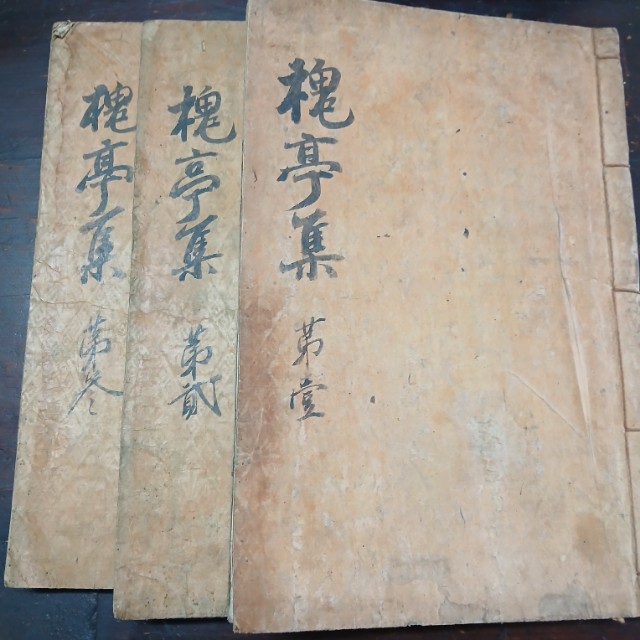 槐亭集 第壹
槐亭集 第貳
槐亭集 第叁